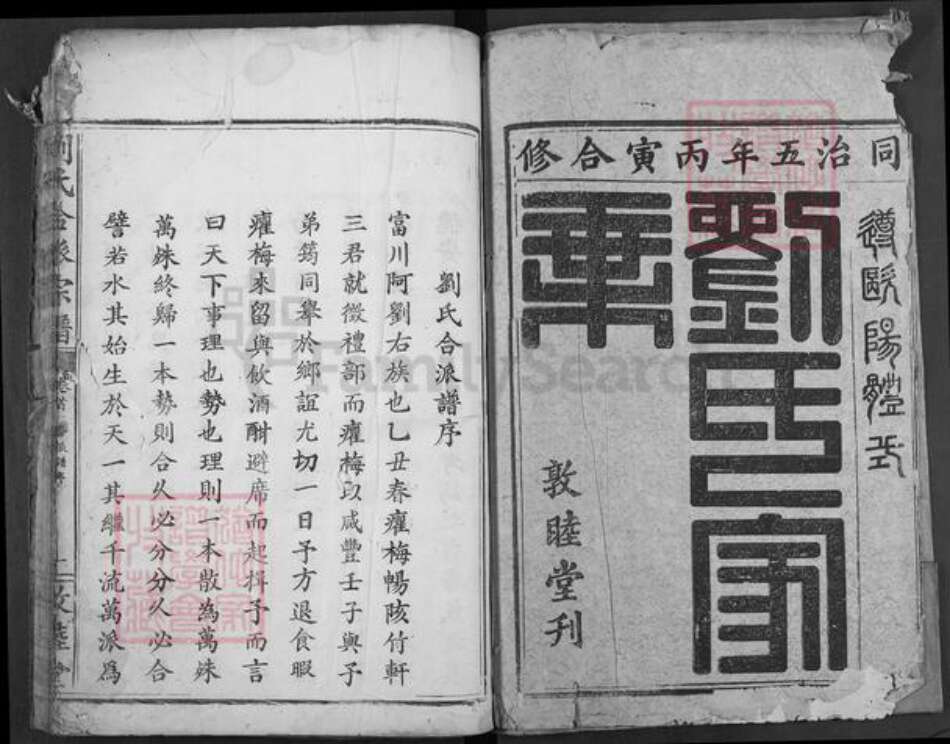 同治五年丙寅合修
遵歐陽體式
劉氏家乘
敦睦堂刋
劉氏合派譜序
富川阿劉右族也乙丑春癯梅暢陔付軒
三君就徵禮部而癯梅以咸豐壬子與予
弟筠同舉於鄉誼尤切一日予方退食暇
癯梅來留與飲酒酣避席而起揖予而言
曰天下事理也勢也理則一本散為萬殊
萬殊終歸一本勢則合久必分分久必合
譬若水其始生於天一其繼千流萬派爲
劉氏合派宗譜
FamilySearch